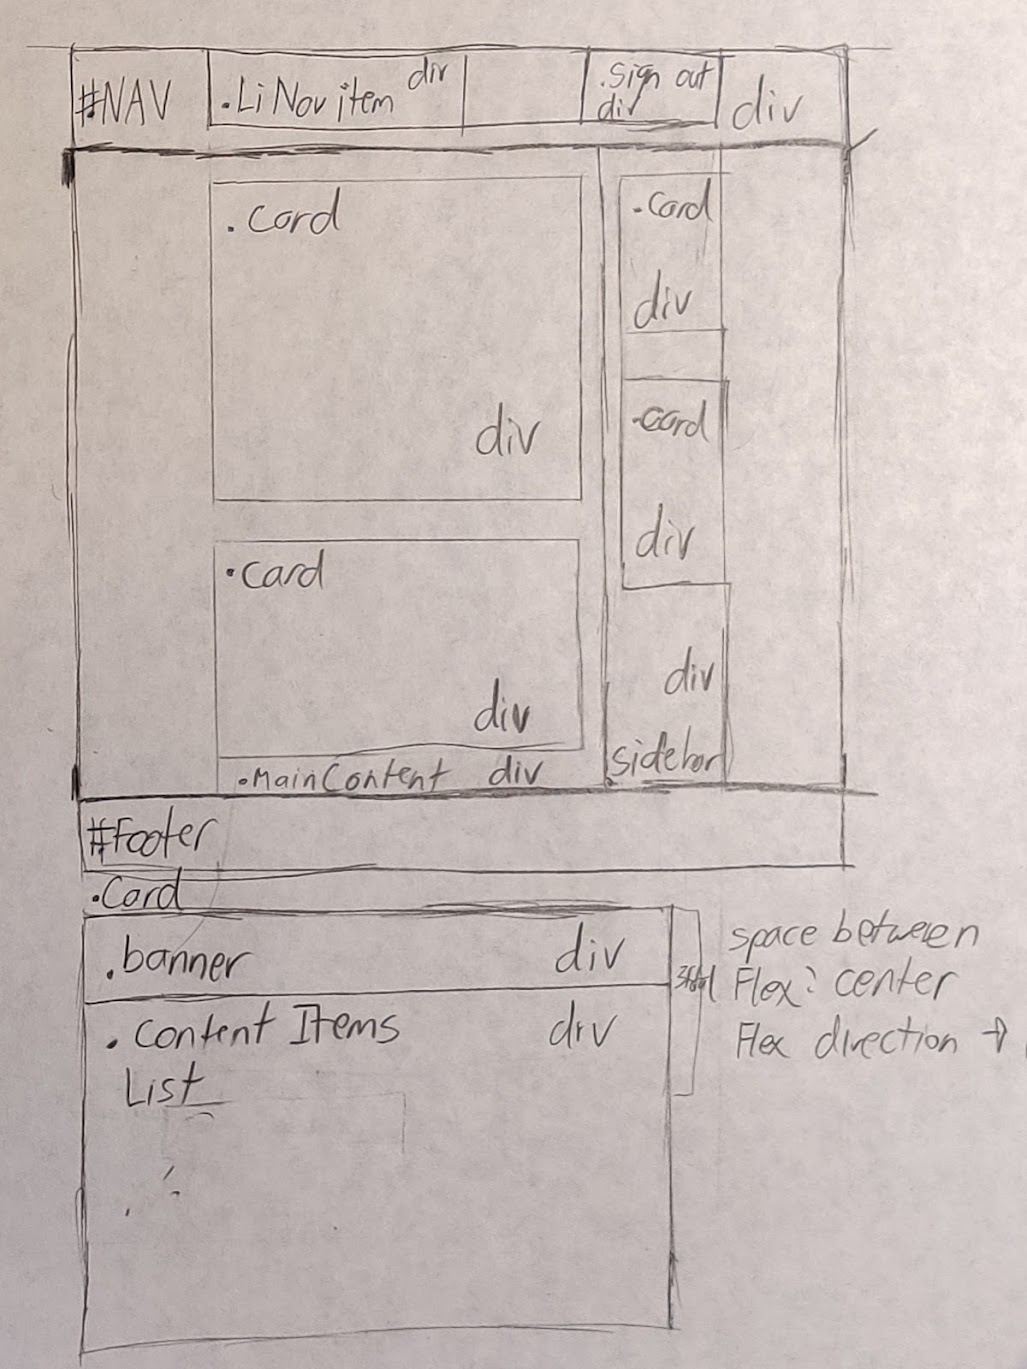 #NAV
.Li Nav item
div
.Sign out
div
div
.Card
div
.Card
div
.Card
div
.Card
div
div
sidebar
.MainContent div
#Footer
.Card
.banner div
.Content Items div
List
space between
Flex: center
Flex direction →